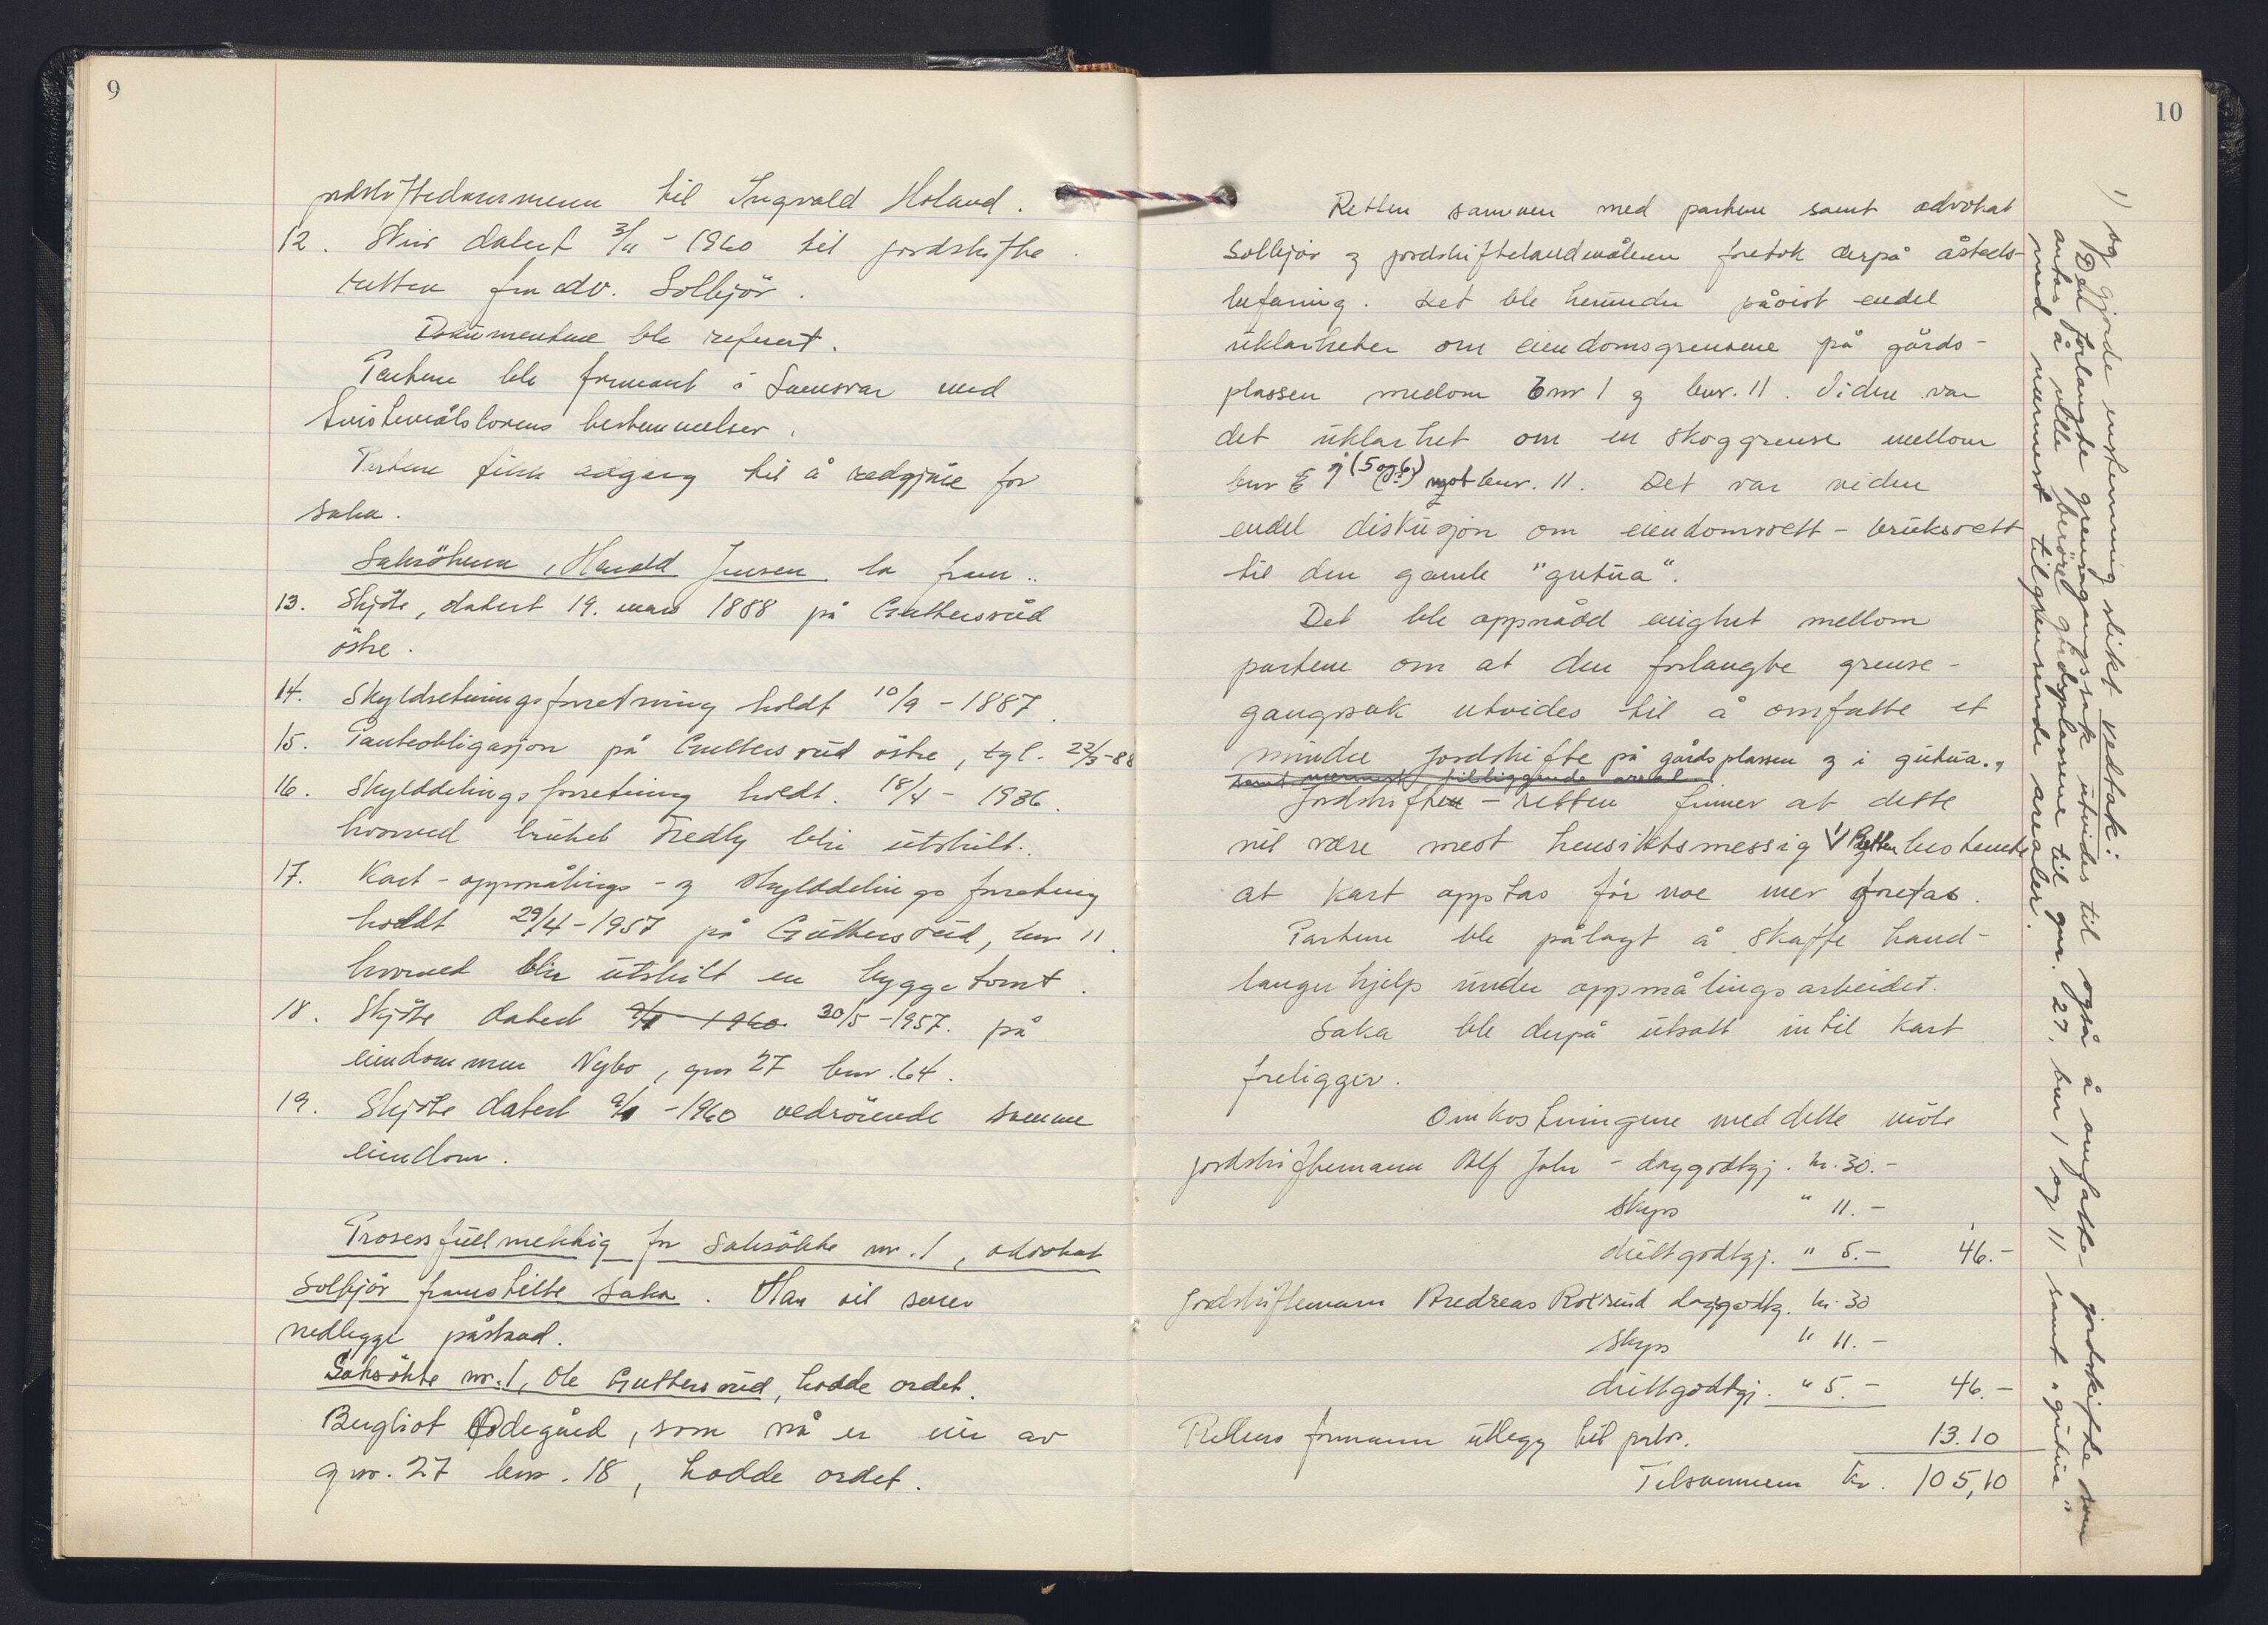 9
jordskiftedommeren til Ingvald Holand.
12. Skriv datert 3/11 - 1960 til jordskifte
retten fra adv. Solbjör.
Dokumentene ble referert.
Partene ble formant i samsvar med
tvistemålslovens bestemmelser.
Partene fikk adgang til å redgjöre for
saka.
Saksökeren, Harald Jensen la fram:
13. Skjöte, datert 19. mars 1888 på Guttersrud
östre.
14. Skyldsetningsforretning holdt 10/9 - 1887.
15. Panteobligasjon på Guttersrud östre, tgl. 22/3-88
16. Skylddelingsforretning holdt. 18/4 - 1936.
hvorved bruket Fredly ble utskilt.
17. Kart - oppmålings - og skylddelingsforretning
holdt 29/4 - 1957 på Guttersrud, bnr 11.
hvorved ble utskilt en byggetomt.
18. Skjöte datert 9/1 - 1960 30/5 - 1957. på
eiendommen Nybo, gnr 27 bnr. 64.
19. Skjöte datert 9/1 - 1960 vedrörende samme
eiendom.
Prosessfullmektig for saksökte nr. 1, advokat
Solbjör framstilte saka. Han vil senere
nedlegge påstand.
Saksökte nr. 1, Ole Guttersrud, hadde ordet.
Bergliot Ödegård, som nå er eier av
gnr. 27 bnr. 18, hadde ordet.
10
Retten sammen med partene samt advokat
Solbjör og jordskiftelandmåleren foretok derpå åsteds-
befaring. Det ble herunder påvist endel
uklarheter om eiendomsgrensene på gårds-
plassen mellom bnr 1 og bnr. 11. Videre var
det uklarhet om en skoggrense mellom
bnr 1 (5 og 6) mot bnr. 11. Det var videre
endel diskusjon om eiendomsrett - bruksrett
til den gamle "gutua".
Det ble oppnådd enighet mellom
partene om at den forlangte grense-
gangssak utvides til å omfatte et
mindre jordskifte på gårdsplassen og i gutua.
samt nærmest tilliggende areal.
Jordskifte - retten finner at dette
vil være mest hensiktsmessig 1) Retten bestemte
at kart opptas för noe mer foretas.
Partene ble pålagt å skaffe hand-
langerhjelp under oppmålingsarbeidet.
Saka ble derpå utsatt intil kart
foreligger.
Omkostningene med dette möte
jordskiftemann Alf Jahr - daggodtgj. kr. 30.-
skyss " 11.-
diettgodtgj. " 5.- 46.-
Jordskiftemann Andreas daggodtg. kr. 30
skyss " 11.-
diettgodtgj. " 5.- 46.-
Rettens formann utlegg til porto. 13.10
Tilsammen kr. 105,10
1) og gjorde enstemmig slikt vedtak:
Den forlangte grensegangssak utvides til også å omfatte jordskifte som
antas å ville beröre gårdsplassene til gnr. 27, bnr 1 og 11 samt "gutua"
med nærmest tilgrensende arealer.